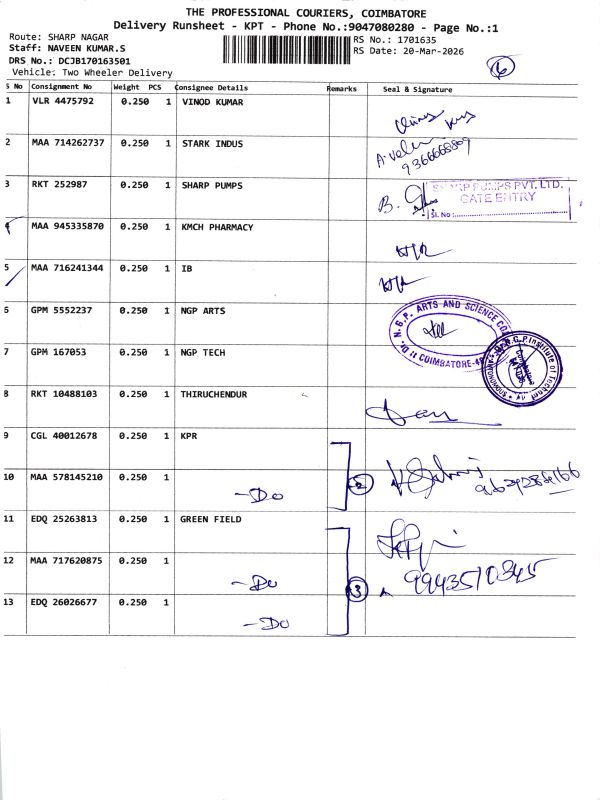 THE PROFESSIONAL COURIERS, COIMBATORE
Delivery Runsheet - KPT - Phone No.:9047080280 - Page No.:1
Route: SHARP NAGAR
RS No.: 1701635
Staff: NAVEEN KUMAR.S
RS Date: 20-Mar-2026
DRS No.: DCJB170163501
6
Vehicle: Two Wheeler Delivery
S No Consignment No Weight PCS Consignee Details Remarks Seal & Signature
1 VLR 4475792 0.250 1 VINOD KUMAR
2 MAA 714262737 0.250 1 STARK INDUS
3 RKT 252987 0.250 1 SHARP PUMPS
B.
SHARP PUMPS PVT. LTD.
GATE ENTRY
Sl. No :
4 MAA 945335870 0.250 1 KMCH PHARMACY
5 MAA 716241344 0.250 1 IB
6 GPM 5552237 0.250 1 NGP ARTS
Dr. N.G.P. ARTS AND SCIENCE
COIMBATORE-48
7 GPM 167053 0.250 1 NGP TECH
N.G.P. Institute of Technol
8 RKT 10488103 0.250 1 THIRUCHENDUR
9 CGL 40012678 0.250 1 KPR
10 MAA 578145210 0.250 1 -Do 2
11 EDQ 25263813 0.250 1 GREEN FIELD
12 MAA 717620875 0.250 1 -Do 3
9943510345
13 EDQ 26026677 0.250 1 -Do